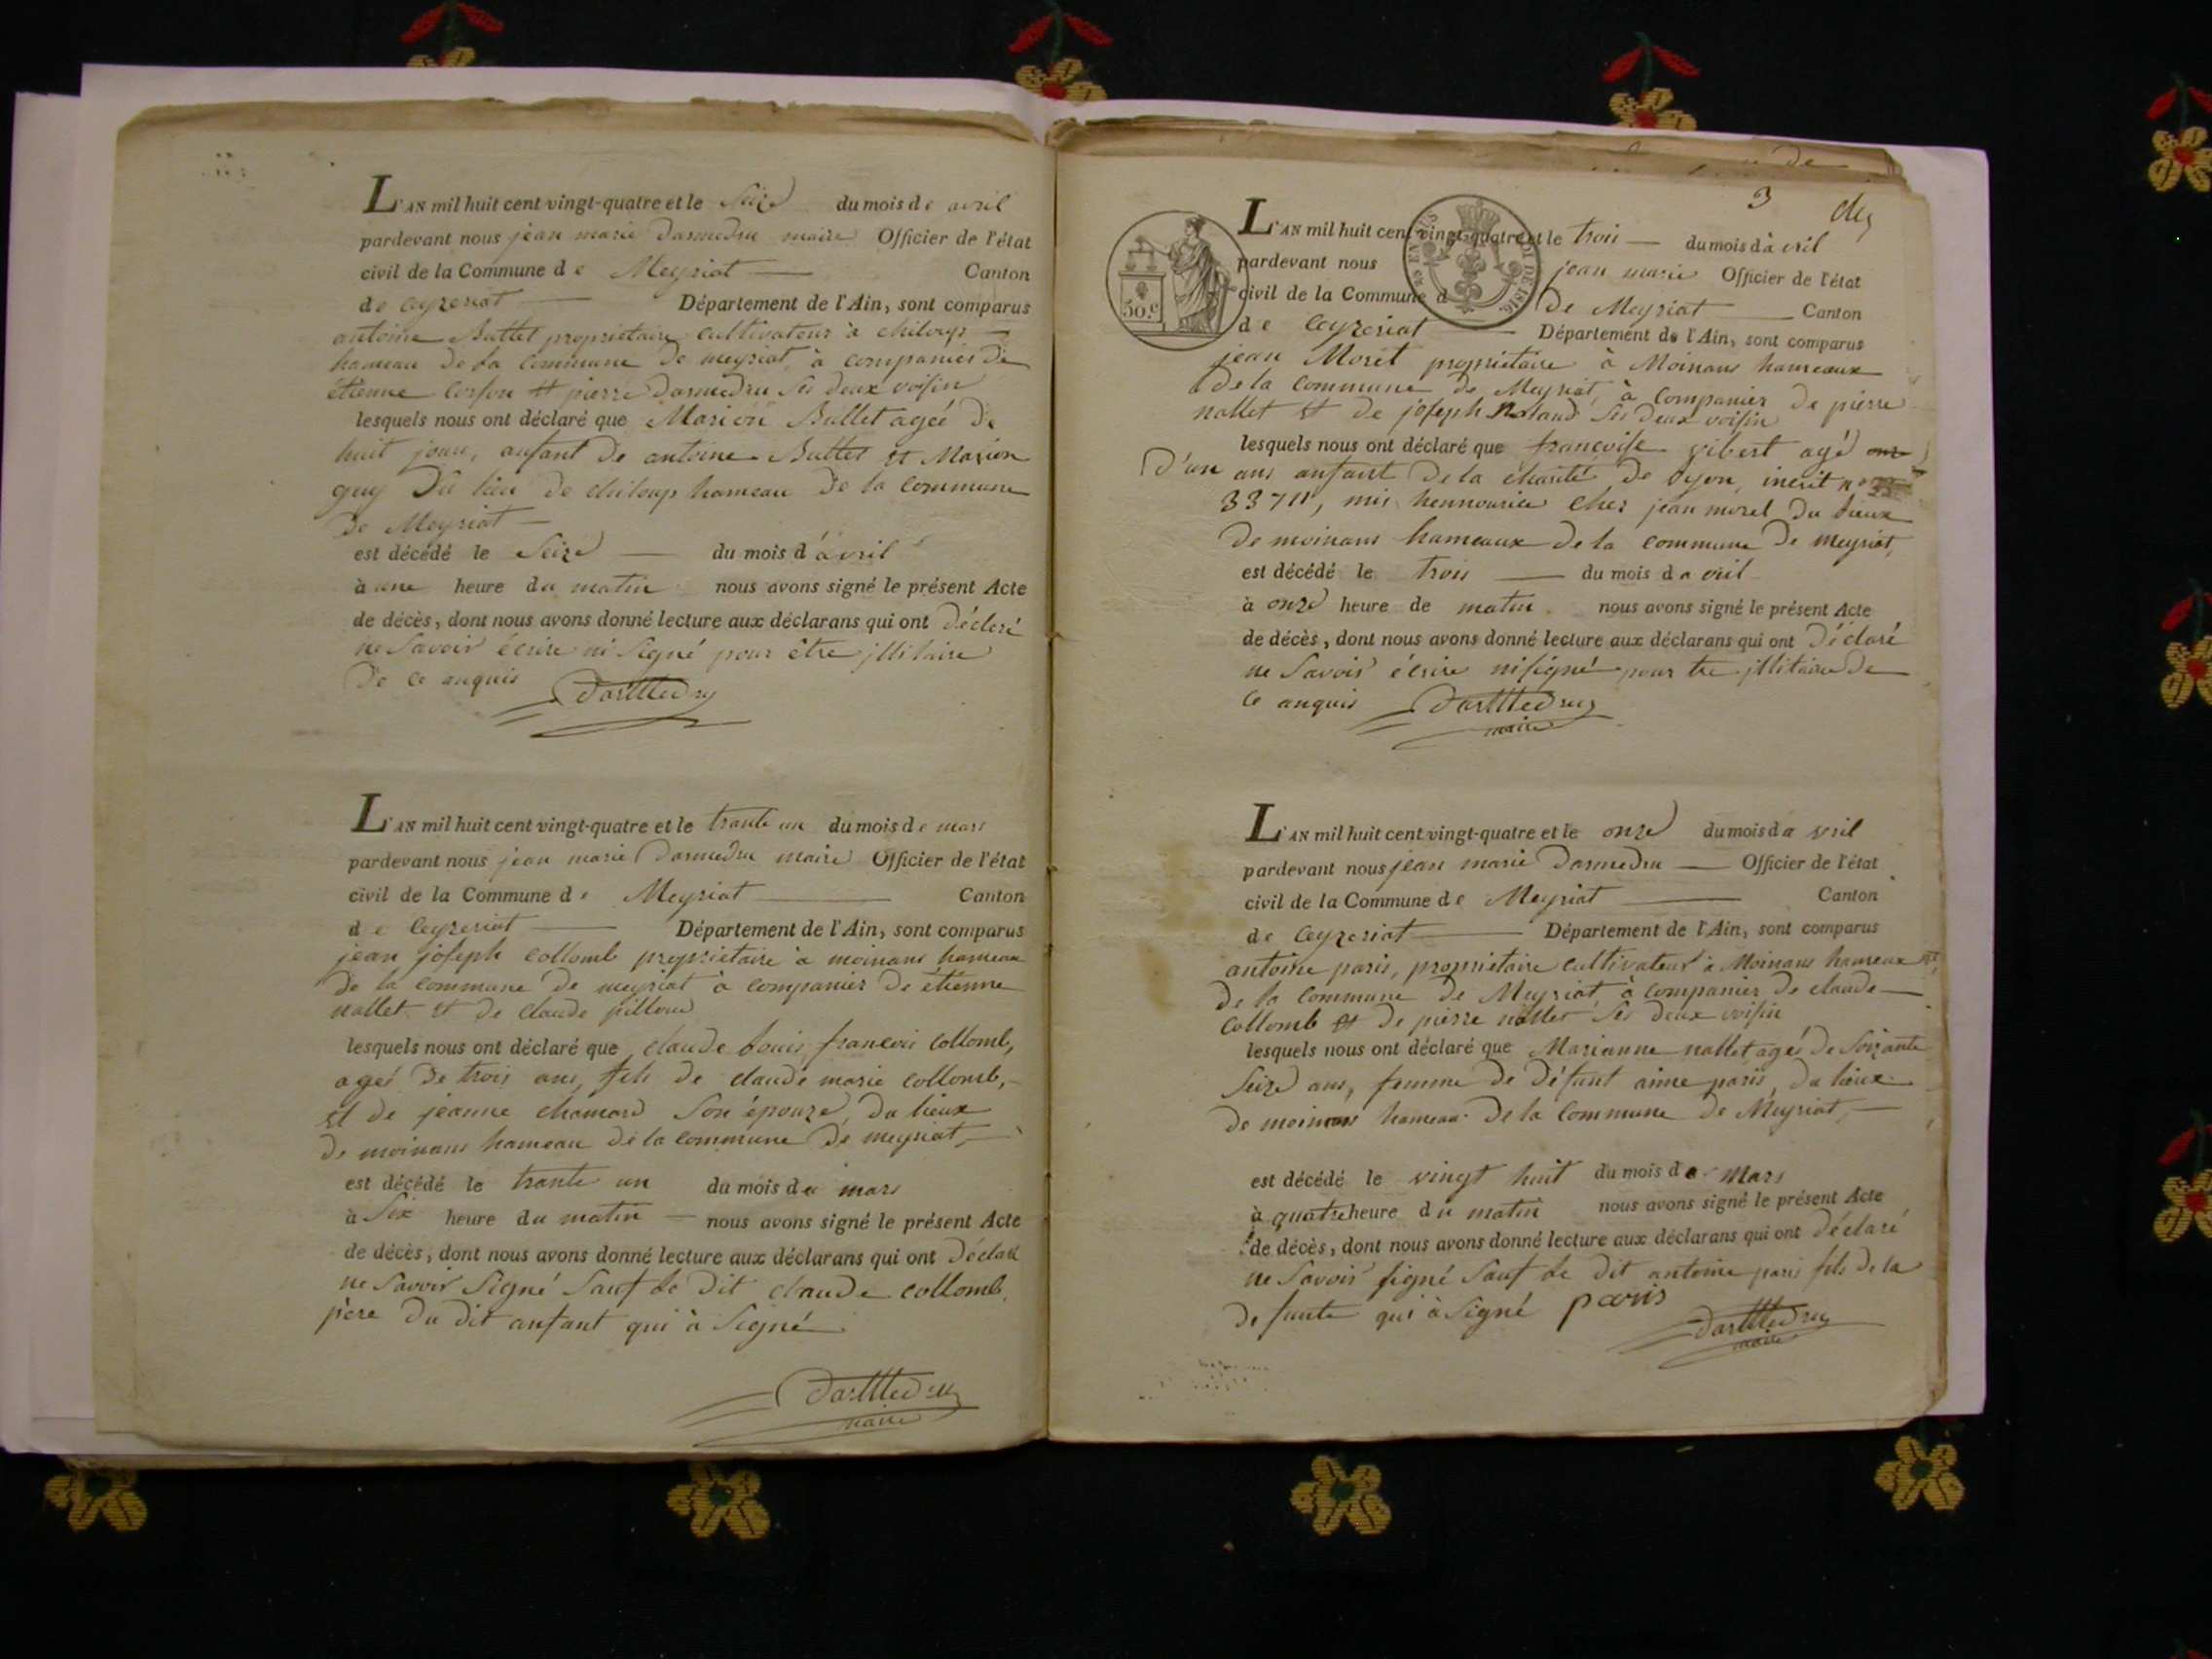 L'AN mil huit cent vingt-quatre et le Seize du mois de avril
pardevant nous jean marie Darmedru maire Officier de l'état
civil de la Commune de Meyriat Canton
de Ceyzeriat Département de l'Ain, sont comparus
antoine Buttet propriétaire cultivateur à chiloup
hameau De la Commune De meyriat, à companier De
étienne Corson et pierre Darmedru Ses Deux voisin
lesquels nous ont déclaré que Marion Buttet agéé De
huit jour, anfant De antoine Buttet et Marion
guy Dû lieu De chiloup hameau De la Commune
De Meyriat
est décédé le Seize du mois d'avril
à une heure du matin nous avons signé le présent Acte
de décès, dont nous avons donné lecture aux déclarans qui ont Déclaré
ne Savoir écrire ni Signé pour être jllitaire
De ce anquis Darmedru
L'AN mil huit cent vingt-quatre et le trante un du mois de mars
pardevant nous jean marie Darmedru maire Officier de l'état
civil de la Commune de Meyriat Canton
de Ceyzeriat Département de l'Ain, sont comparus
jean joseph Collomb propriétaire à moinans hameau
De la Commune De meyriat à companier De étienne
nallet et De Claude pilloud
lesquels nous ont déclaré que claude Louis francois Collomb,
ageé De trois ans, fils de claude marie Collomb,
et de jeanne chamard Son épouze, Du lieux
De moinans hameau de la Commune De meyriat,
est décédé le trante un du mois de mars
à Six heure du matin nous avons signé le présent Acte
de décès, dont nous avons donné lecture aux déclarans qui ont Déclaré
ne Savoir Signé Sauf Le Dit claude Collomb
père Du Dit anfant qui à Signé
Darmedru
maire
3
50.c
L'AN mil huit cent vingt-quatre et le trois du mois d'avril
pardevant nous jean marie Officier de l'état
civil de la Commune de Meyriat Canton
de Ceyzeriat Département de l'Ain, sont comparus
jean Morel propriétaire à Moinans hameaux
De la Commune De Meyriat, à Companier De pierre
nallet et De joseph Ses Deux voisin
lesquels nous ont déclaré que francoise gibert agé
D'un ans anfant De la charité De Dyon, inscrit n°
33711, mis hennourice Chez jean morel Du Lieux
De moinans hameaux De la commune De meyriat,
est décédé le trois du mois d avril
à onze heure de matin nous avons signé le présent Acte
de décès, dont nous avons donné lecture aux déclarans qui ont Déclaré
ne Savoir écrire ni signé pour tre jllitaire De
Ce anquis Darmedru
maire
L'AN mil huit cent vingt-quatre et le onze du mois d avril
pardevant nous jean marie Darmedru Officier de l'état
civil de la Commune de Meyriat Canton
de Ceyzeriat Département de l'Ain, sont comparus
antoine paris, propriétaire cultivateur à Moinans hameaux
De la Commune De Meyriat à companier De claude
Collomb et De pierre nallet Ses Deux voisin
lesquels nous ont déclaré que Marianne nallet ageé De Soizante
Seize ans, femme De Défunt aime paris, Du lieux
De moinans hameau De la Commune De Meyriat,
est décédé le vingt huit du mois de Mars
à quatre heure du matin nous avons signé le présent Acte
de décès, dont nous avons donné lecture aux déclarans qui ont Déclaré
ne Savoir signé Sauf Le Dit antoine paris fils De la
De funte qui à Signé paris
Darmedru
maire